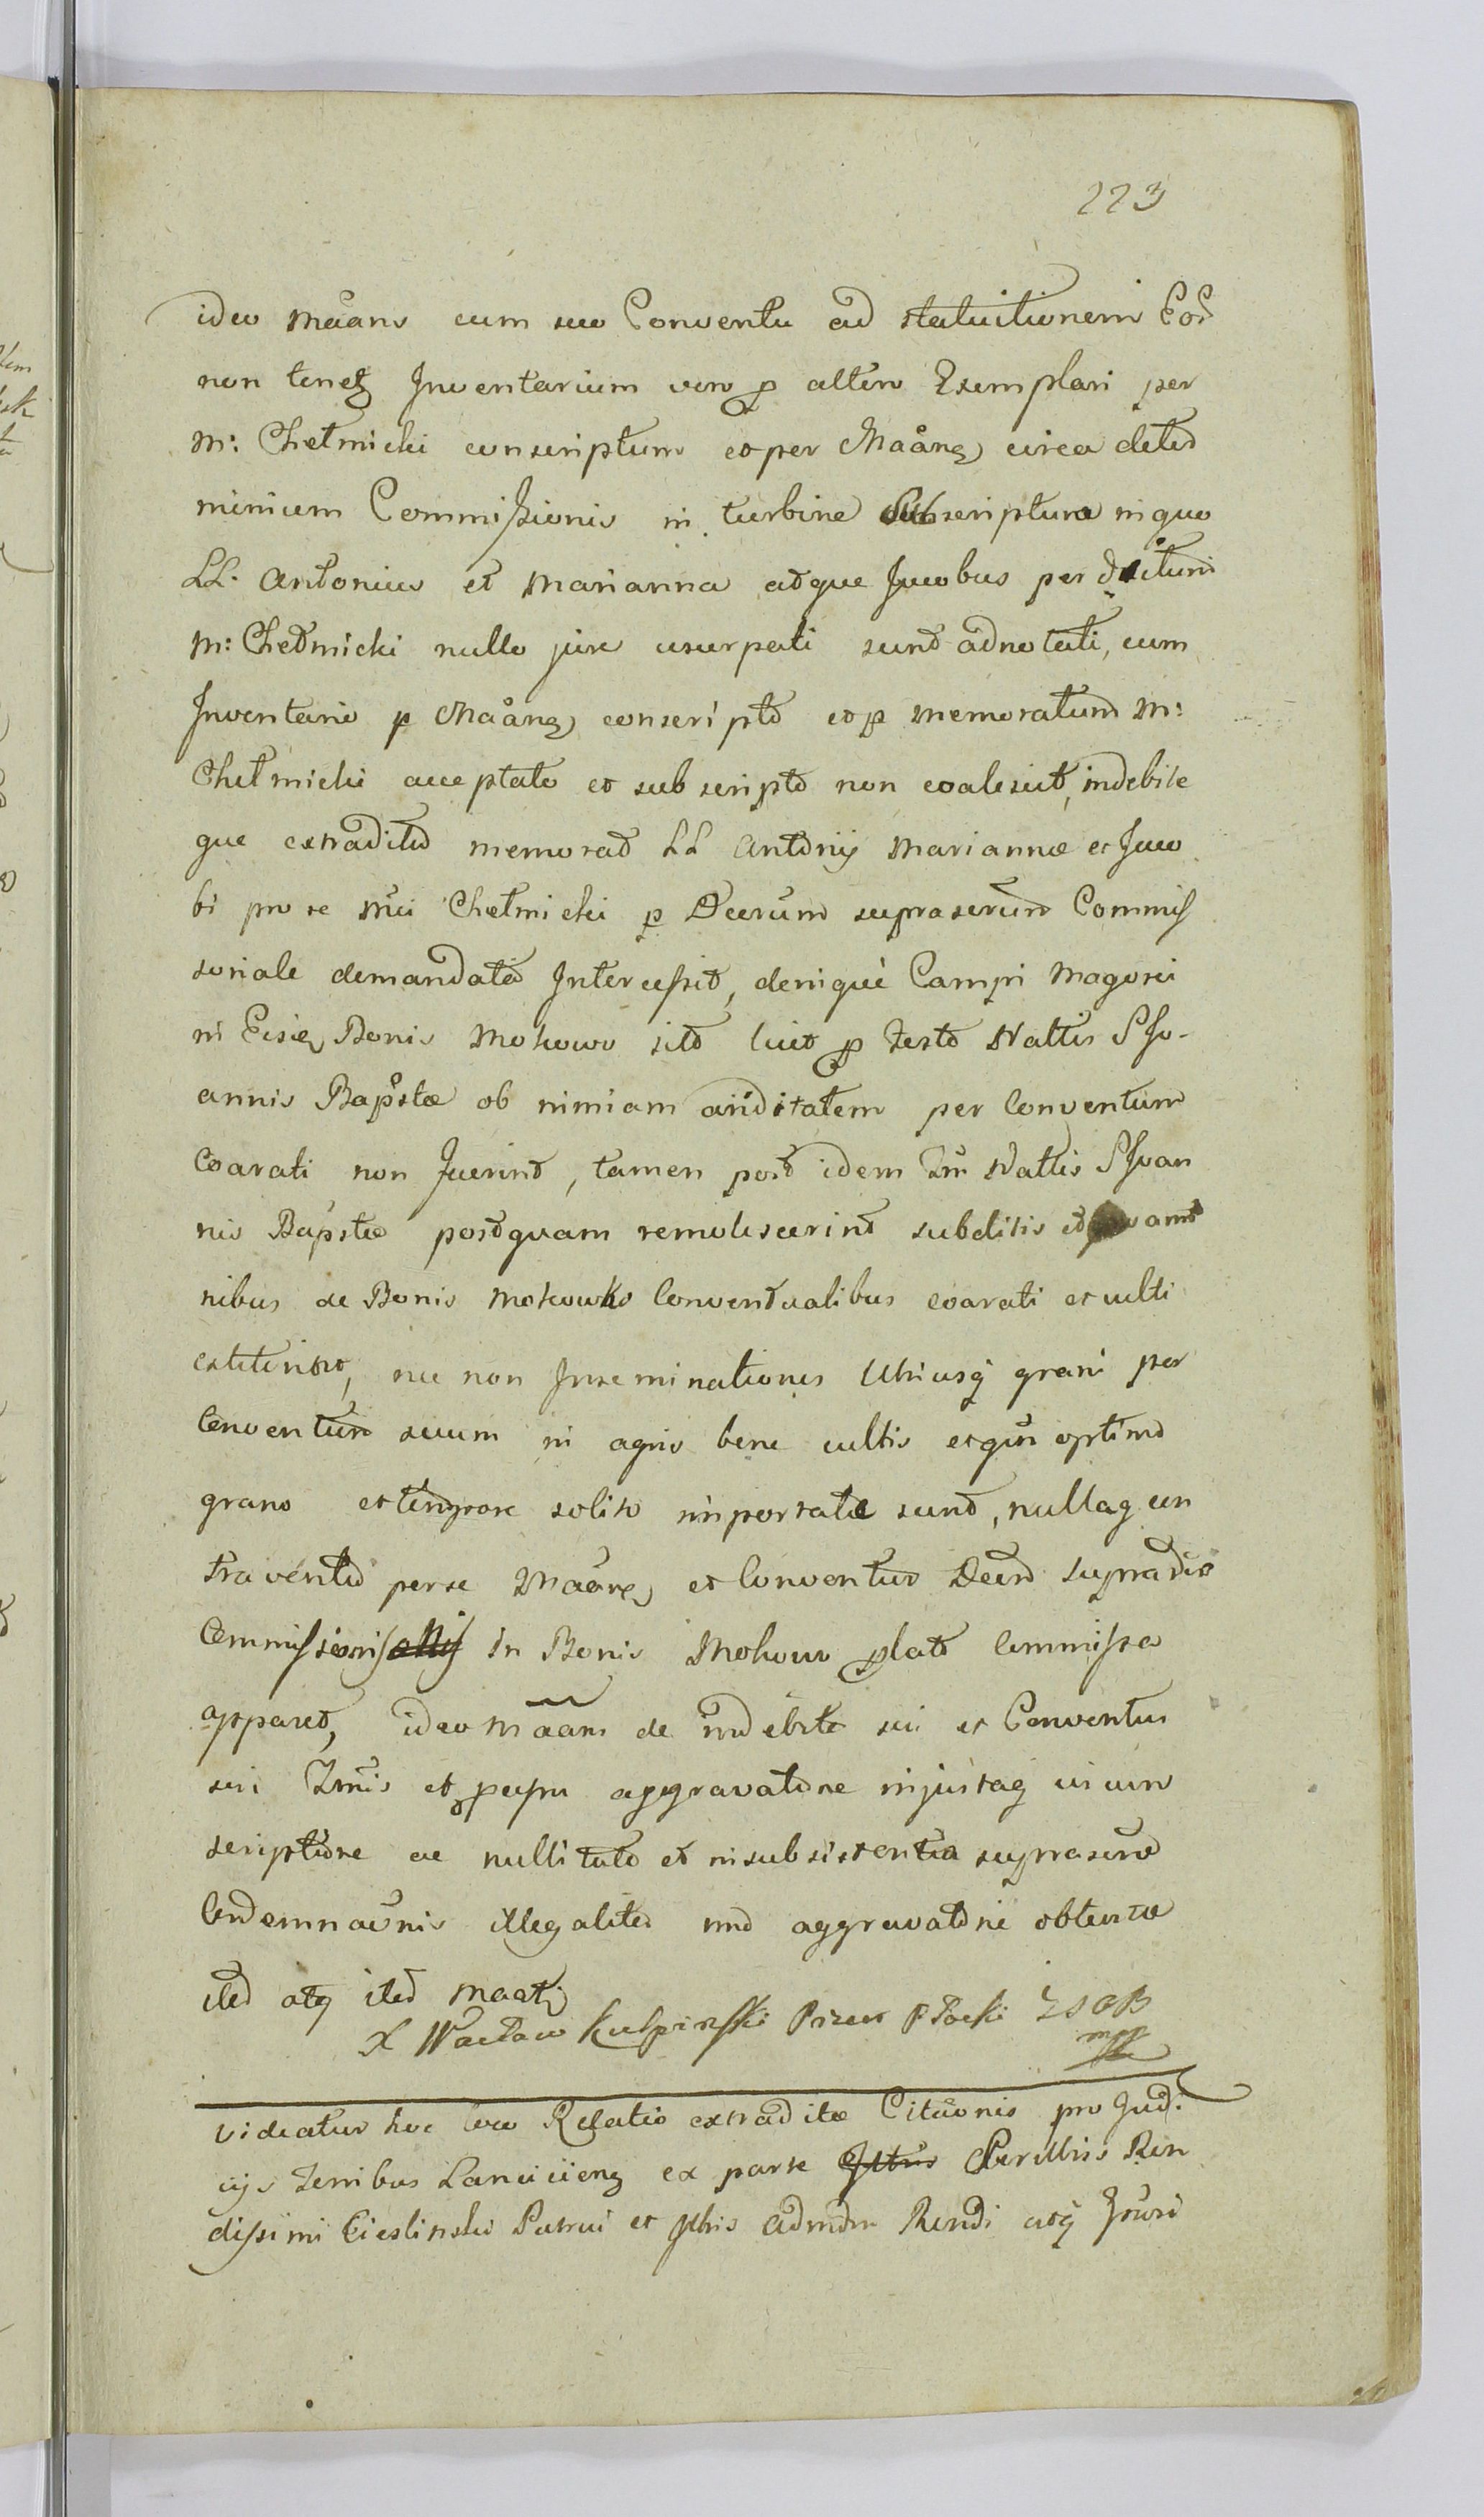 223
ideo Maans cum suo Conventu ad statuitionem Eod
non tenetz Inventarium vero p altero Exemplari per
M: Chełmicki conscriptum et per Maang circa
minium Commissionis in turbine subscriptum in quo
LL. Antonius et Marianna atque Jacobus per
M: Chełmicki nullo jure usurpati sunt adnotati, cum
Inventario p Maang conscripto et p memoratum M:
Chełmicki acceptato et subscripto non coalescit, indebite
que extraditio memorat LL Antonij Mariannæ et Jaco
bi pro re Mci Chełmicki p Decrum suprascrum Commis
soriale demandata Intercessit, denique Campi Magorei
in Bonis Mokowo sito licet p Festo Nattis S Jo-
annis Bapstæ ob nimiam ariditatem per Conventum
Coarati non fuerint, tamen post idem Nattis S Joan
nis Bapstæ postquam remoluerint subditis
nibus de Bonis Mokowko Conventualibus coarati et culti
extiterint, nec non Inseminationes Utriusq grani per
Conventum suum in agris bene cultis et optimo
grano et tempore solito importatæ sunt, nullaq con
traventio per se Maang et Conventum Decrd supradict
Commissionis in Bonis Mokowo plato commissa
apparet, ideo Maans de indebite sui et Conventus
sui aggravatione injustaq
scriptione ac nullitate et insubsistentia suprascrme
Condemnaonis illegaliter aggravatone obtentæ
itd atq itd maatj
X Wacław Kulpiński Przeor Płocki Z S O B
mp
Videatur hoc loco Relatio extraditæ Citaonis pro Judi:
cijs Tenibus Lanciciens ex parte Perillris Ren
dissimi Cieslinski Patrui et Illris Admdm Rendi atq